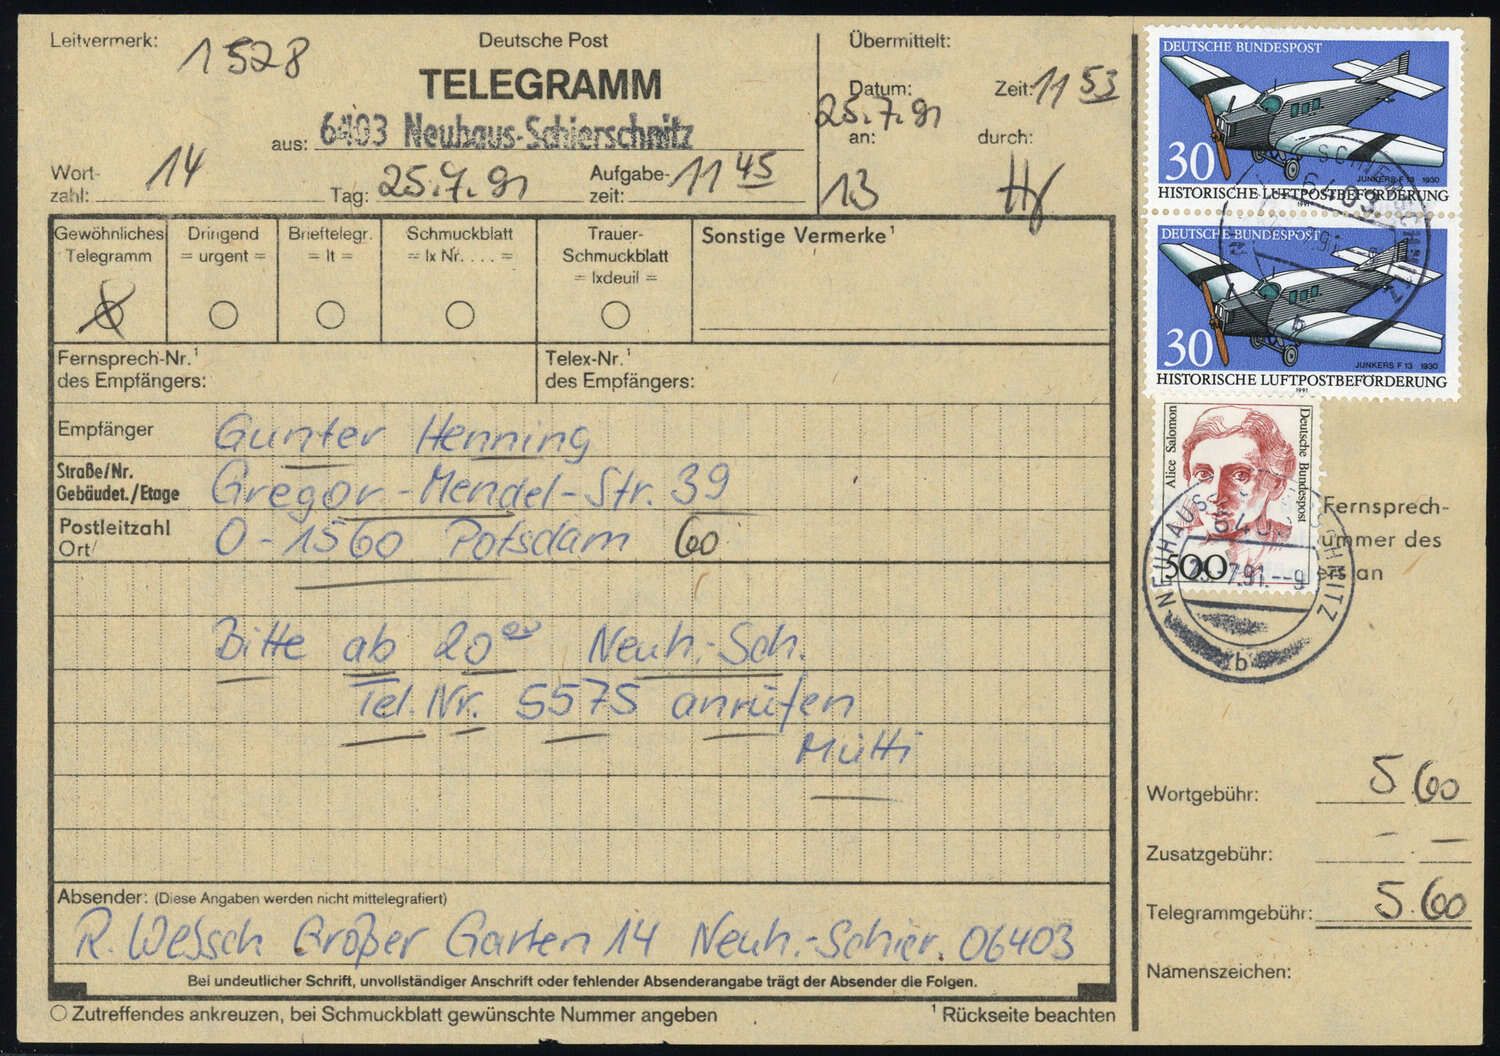 Leitvermerk: 1528
Deutsche Post
TELEGRAMM
aus: 6403 Neuhaus-Schierschnitz
Wort-
zahl: 14
Tag: 25.7.91
Aufgabe-
zeit: 11 45
Übermittelt:
Datum: 25.7.91
Zeit: 11 53
an: 13
durch:
Gewöhnliches
Telegramm
Dringend
= urgent =
Brieftelegr.
= lt =
Schmuckblatt
= lx Nr. . . . =
Trauer-
Schmuckblatt
= lxdeuil =
Sonstige Vermerke¹
Fernsprech-Nr.¹
des Empfängers:
Telex-Nr.¹
des Empfängers:
Empfänger Gunter Henning
Straße/Nr.
Gebäudet./Etage Gregor-Mendel-Str. 39
Postleitzahl
Ort/ O-1560 Potsdam 60
Bitte ab 20⁰⁰ Neuh.-Sch.
Tel. Nr. 5575 anrufen
Mutti
Absender: (Diese Angaben werden nicht mittelegrafiert)
R. Welsch Großer Garten 14 Neuh.-Schier. 06403
Bei undeutlicher Schrift, unvollständiger Anschrift oder fehlender Absenderangabe trägt der Absender die Folgen.
Zutreffendes ankreuzen, bei Schmuckblatt gewünschte Nummer angeben
¹ Rückseite beachten
DEUTSCHE BUNDESPOST
30
JUNKERS F 13 1930
HISTORISCHE LUFTPOSTBEFÖRDERUNG
1991
DEUTSCHE BUNDESPOST
30
JUNKERS F 13 1930
HISTORISCHE LUFTPOSTBEFÖRDERUNG
1991
Alice Salomon
Deutsche Bundespost
500
6403
NEUHAUS-SCHIERSCHNITZ
7.91.--9
b
Fernsprech-
ummer des
ers an
Wortgebühr: 5.60
Zusatzgebühr: – –
Telegrammgebühr: 5.60
Namenszeichen: